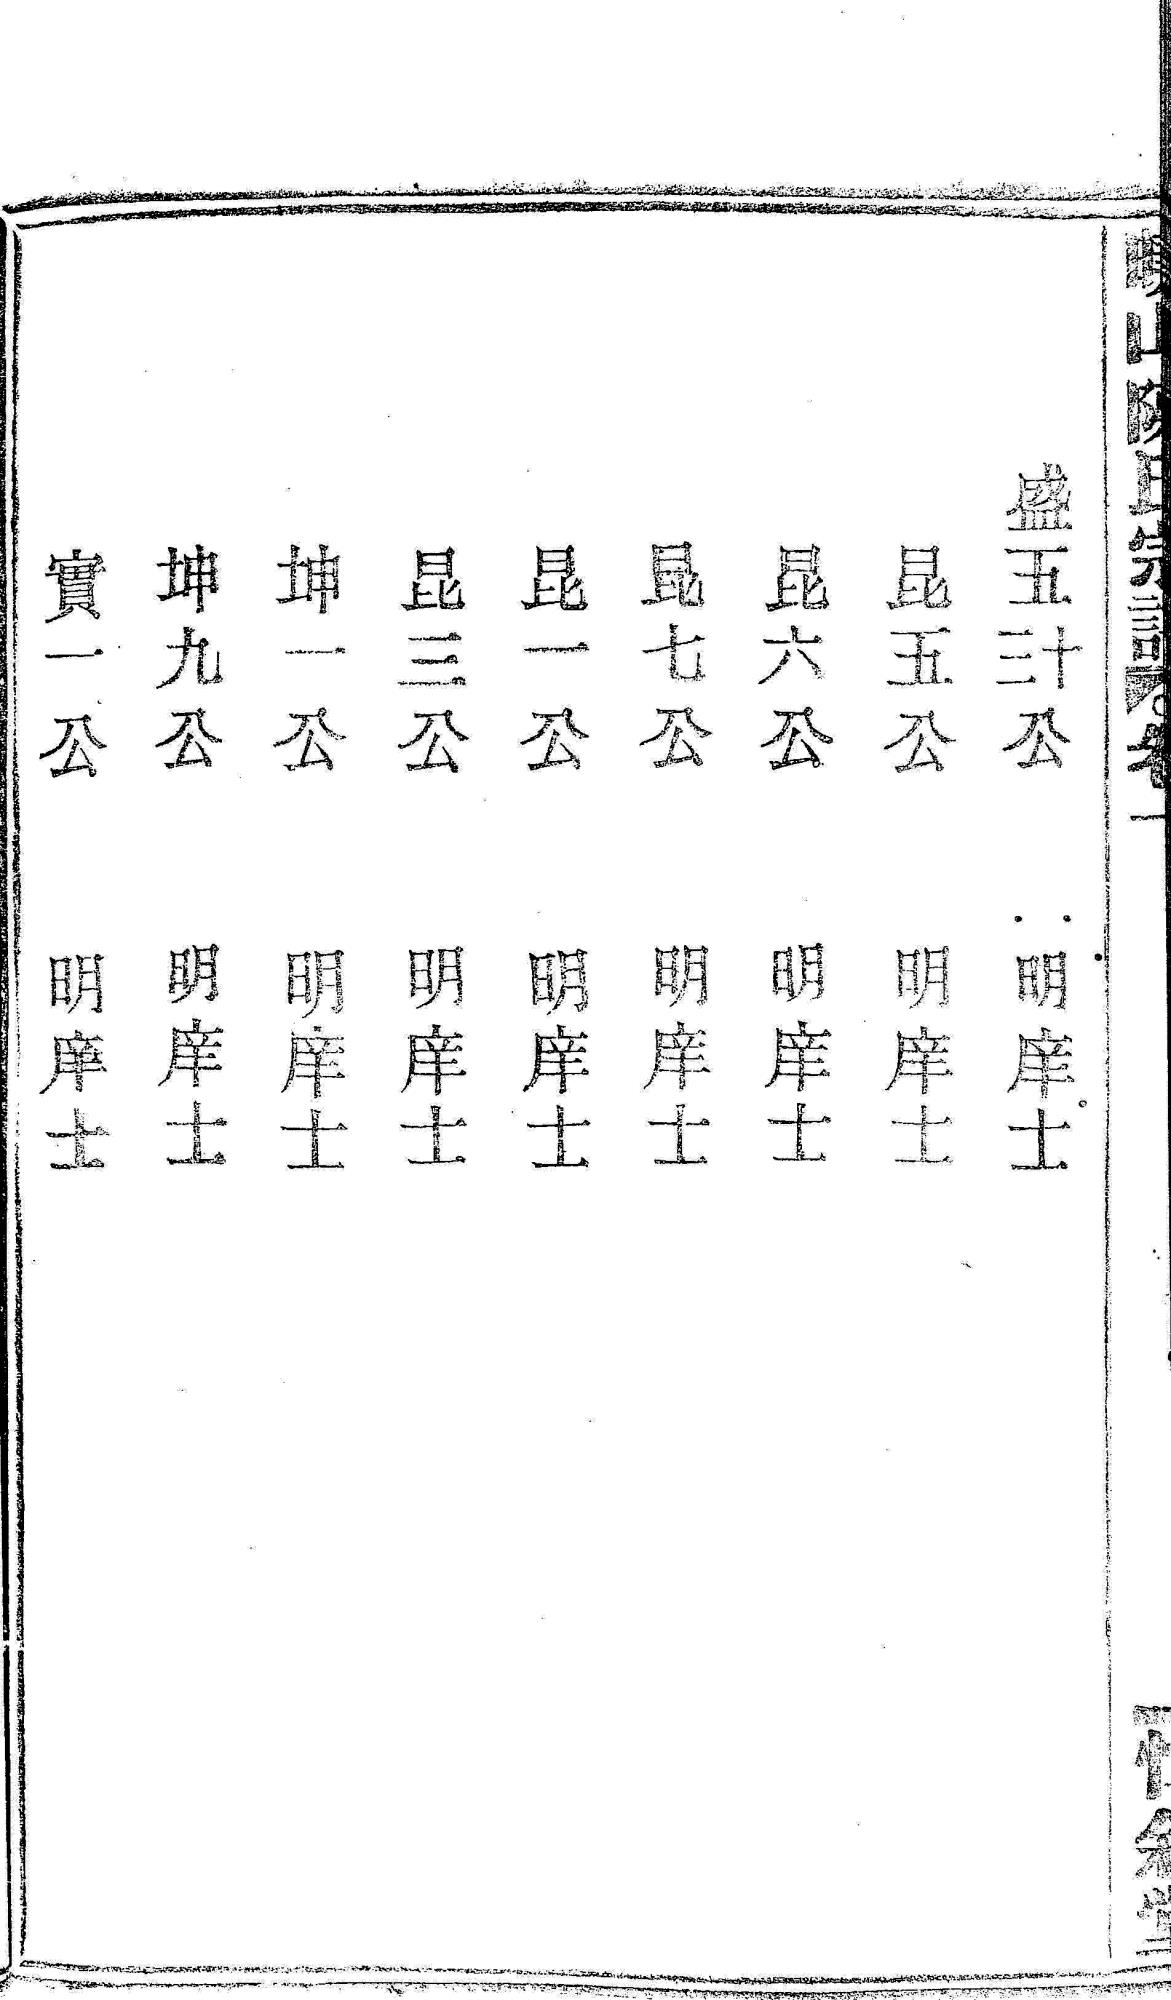 山陳氏宗譜 卷一
盛五十三公 明庠士
昆五公 明庠士
昆六公 明庠士
昆七公 明庠士
昆一公 明庠士
昆三公 明庠士
坤一公 明庠士
坤九公 明庠士
實一公 明庠士
堂